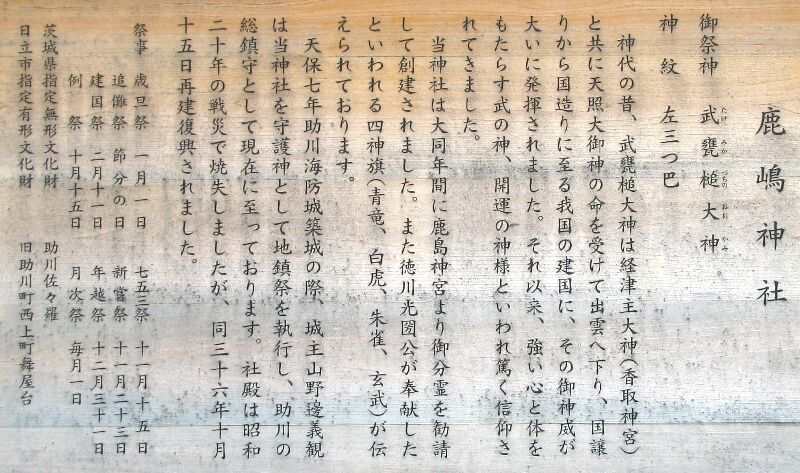 鹿嶋神社
御祭神　武甕槌大神
たけ　みか　づちの　おお　かみ
神紋　左三つ巴
神代の昔、武甕槌大神は経津主大神(香取神宮)
と共に天照大御神の命を受けて出雲へ下り、国譲
りから国造りに至る我国の建国に、その御神威が
大いに発揮されました。それ以来、強い心と体を
もたらす武の神、開運の神様といわれ篤く信仰さ
れてきました。
当神社は大同年間に鹿島神宮より御分霊を勧請
して創建されました。また徳川光圀公が奉献した
といわれる四神旗(青竜、白虎、朱雀、玄武)が伝
えられております。
天保七年助川海防城築城の際、城主山野邊義観
は当神社を守護神として地鎮祭を執行し、助川の
総鎮守として現在に至っております。社殿は昭和
二十年の戦災で焼失しましたが、同三十六年十月
十五日再建復興されました。
祭事　歳旦祭　一月一日　七五三祭　十一月十五日
追儺祭　節分の日　新嘗祭　十一月二十三日
建国祭　二月十一日　年越祭　十二月三十一日
例祭　十月十五日　月次祭　毎月一日
茨城県指定無形文化財　助川佐々羅
日立市指定有形文化財　旧助川町西上町舞屋台